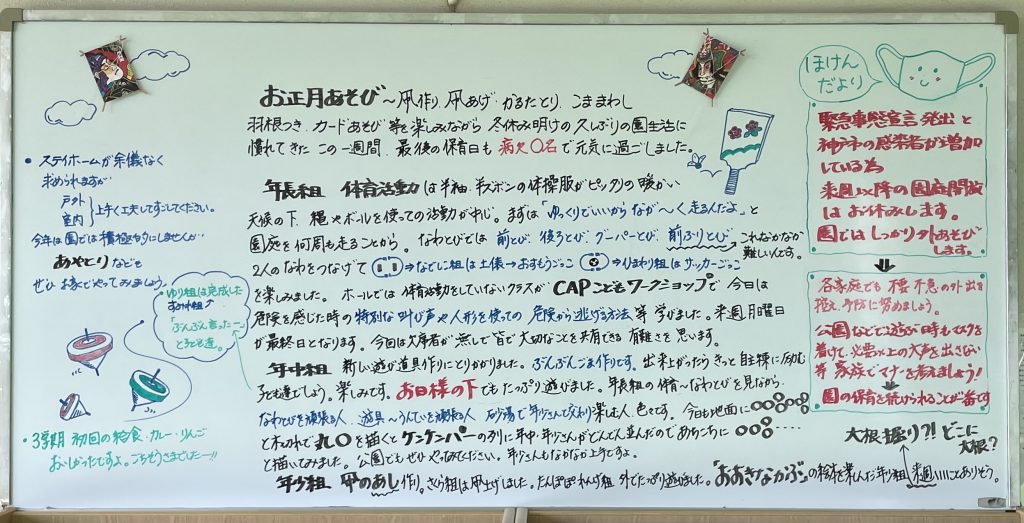 お正月あそび～凧作り、凧あげ、かるたとり、こままわし
羽根つき、カードあそび 等を楽しみながら 冬休み明けの久しぶりの園生活に
慣れてきた この一週間、最後の保育日も 病欠0名で元気に過ごしました。
年長組 体育活動は半袖、半ズボンの体操服がピッタリの暖かい
天候の下、縄やボールを使っての活動が中心。まずは「ゆっくりでいいから なが～く走るんだよ」と
園庭を何周も走ることから。なわとびでは 前とび、後ろとび、グーパーとび、前ふりとび
これなかなか
難しいんです。
2人のなわをつなげて →なでしこ組は土俵→おすもうごっこ →ひまわり組はサッカーごっこ
を楽しみました。ホールでは 体育活動をしていないクラスが CAPこどもワークショップで 今日は
危険を感じた時の特別な叫び声や人形を使っての 危険から逃げる方法 等 学びました。来週月曜日
が最終日となります。今回は欠席者が無しで皆で大切なことを共有できる 有難さを 思います。
年中組 新しい遊び道具作りにとりかかりました。ぶんぶんごま作りです。出来上がったらきっと自主練に励む
子も達でしょう。楽しみです。お日様の下でもたっぷり遊びました。年長組の体育～なわとびを見ながら、
なわとびを頑張る人、遊具～うんていを頑張る人、砂場で年少さんと交わり楽しむ人、色々です。今日も地面に
と木の枝で 丸〇を描くとケンケンパーの列に年中・年少さんがどんどん並んだのであちこちに
と描いてみました。公園でもぜひやってみてください。年少さんもなかなか上手ですよ。
年少組 凧のあし作り。さくら組は凧上げしました。たんぽぽ れんげ組 外でたっぷり遊びました。「おおきなかぶ」の絵本を楽しんだ年少組 来週
大根掘り?! どこに
大根?
• ステイホームが余儀なく
求められますが…
戸外
室内
上手く工夫してすごしてください。
今年は園では積極的にしませんが…
あやとりなどを
ぜひ お家でやってみましょう
• ゆり組は完成した
「ぶんぶん言った～」
と子ども達。
• 3学期 初回の給食・カレー・りんご
おいしかったですよ。ごちそうさまでした～!!
ほけん
だより
緊急事態宣言発出と
神戸市の感染者が増加
している為
来週以降の園庭開放
はお休みします。
園ではしっかり外あそび
します。
各家庭でも 不要不急の外出を
控え、予防に努めましょう。
公園などで遊ぶ時もマスクを
着けて、必要以上の大声を出さない
等 家族でマナーを考えましょう!
園の保育を続けられることが一番です